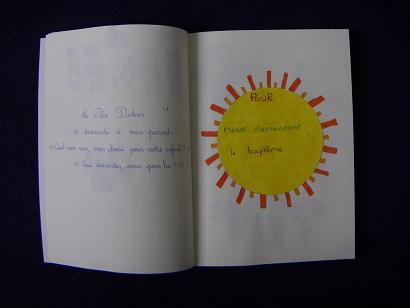 Le Père Didier
a demandé à mes parents
« Quel nom avez vous choisi pour votre enfant ? »
« Que demandez-vous pour lui ? »
POUR
Nous demandons
le baptême